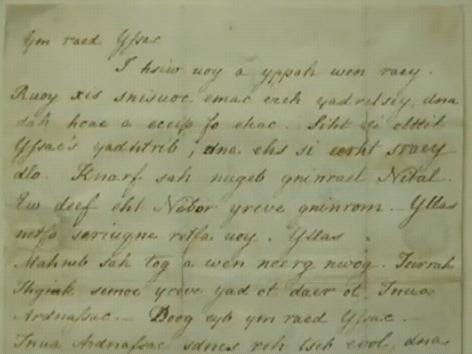 Ym raed Yssac
I hsiw uoy a yppah wen raey.
Ruoy xis snisuoc emac ereh yadretsey, dna
dah hcae a eceip fo ekac. Siht si elttil
Yssac's yadhtrib, dna ehs si eerht sraey
dlo. Knarf sah nugeb gninrael Nital.
Ew deef eht Nibor yreve gninrom. Yllas
netfo seriuqne retfa uoy. Yllas
Mahneb sah tog a wen neerg nwog. Teirrah
Thgink semoc yreve yad ot daer ot Tnua
Ardnassac. Doog eyb ym raed Yssac.
Tnua Ardnassac sdnes reh tseb evol, dna